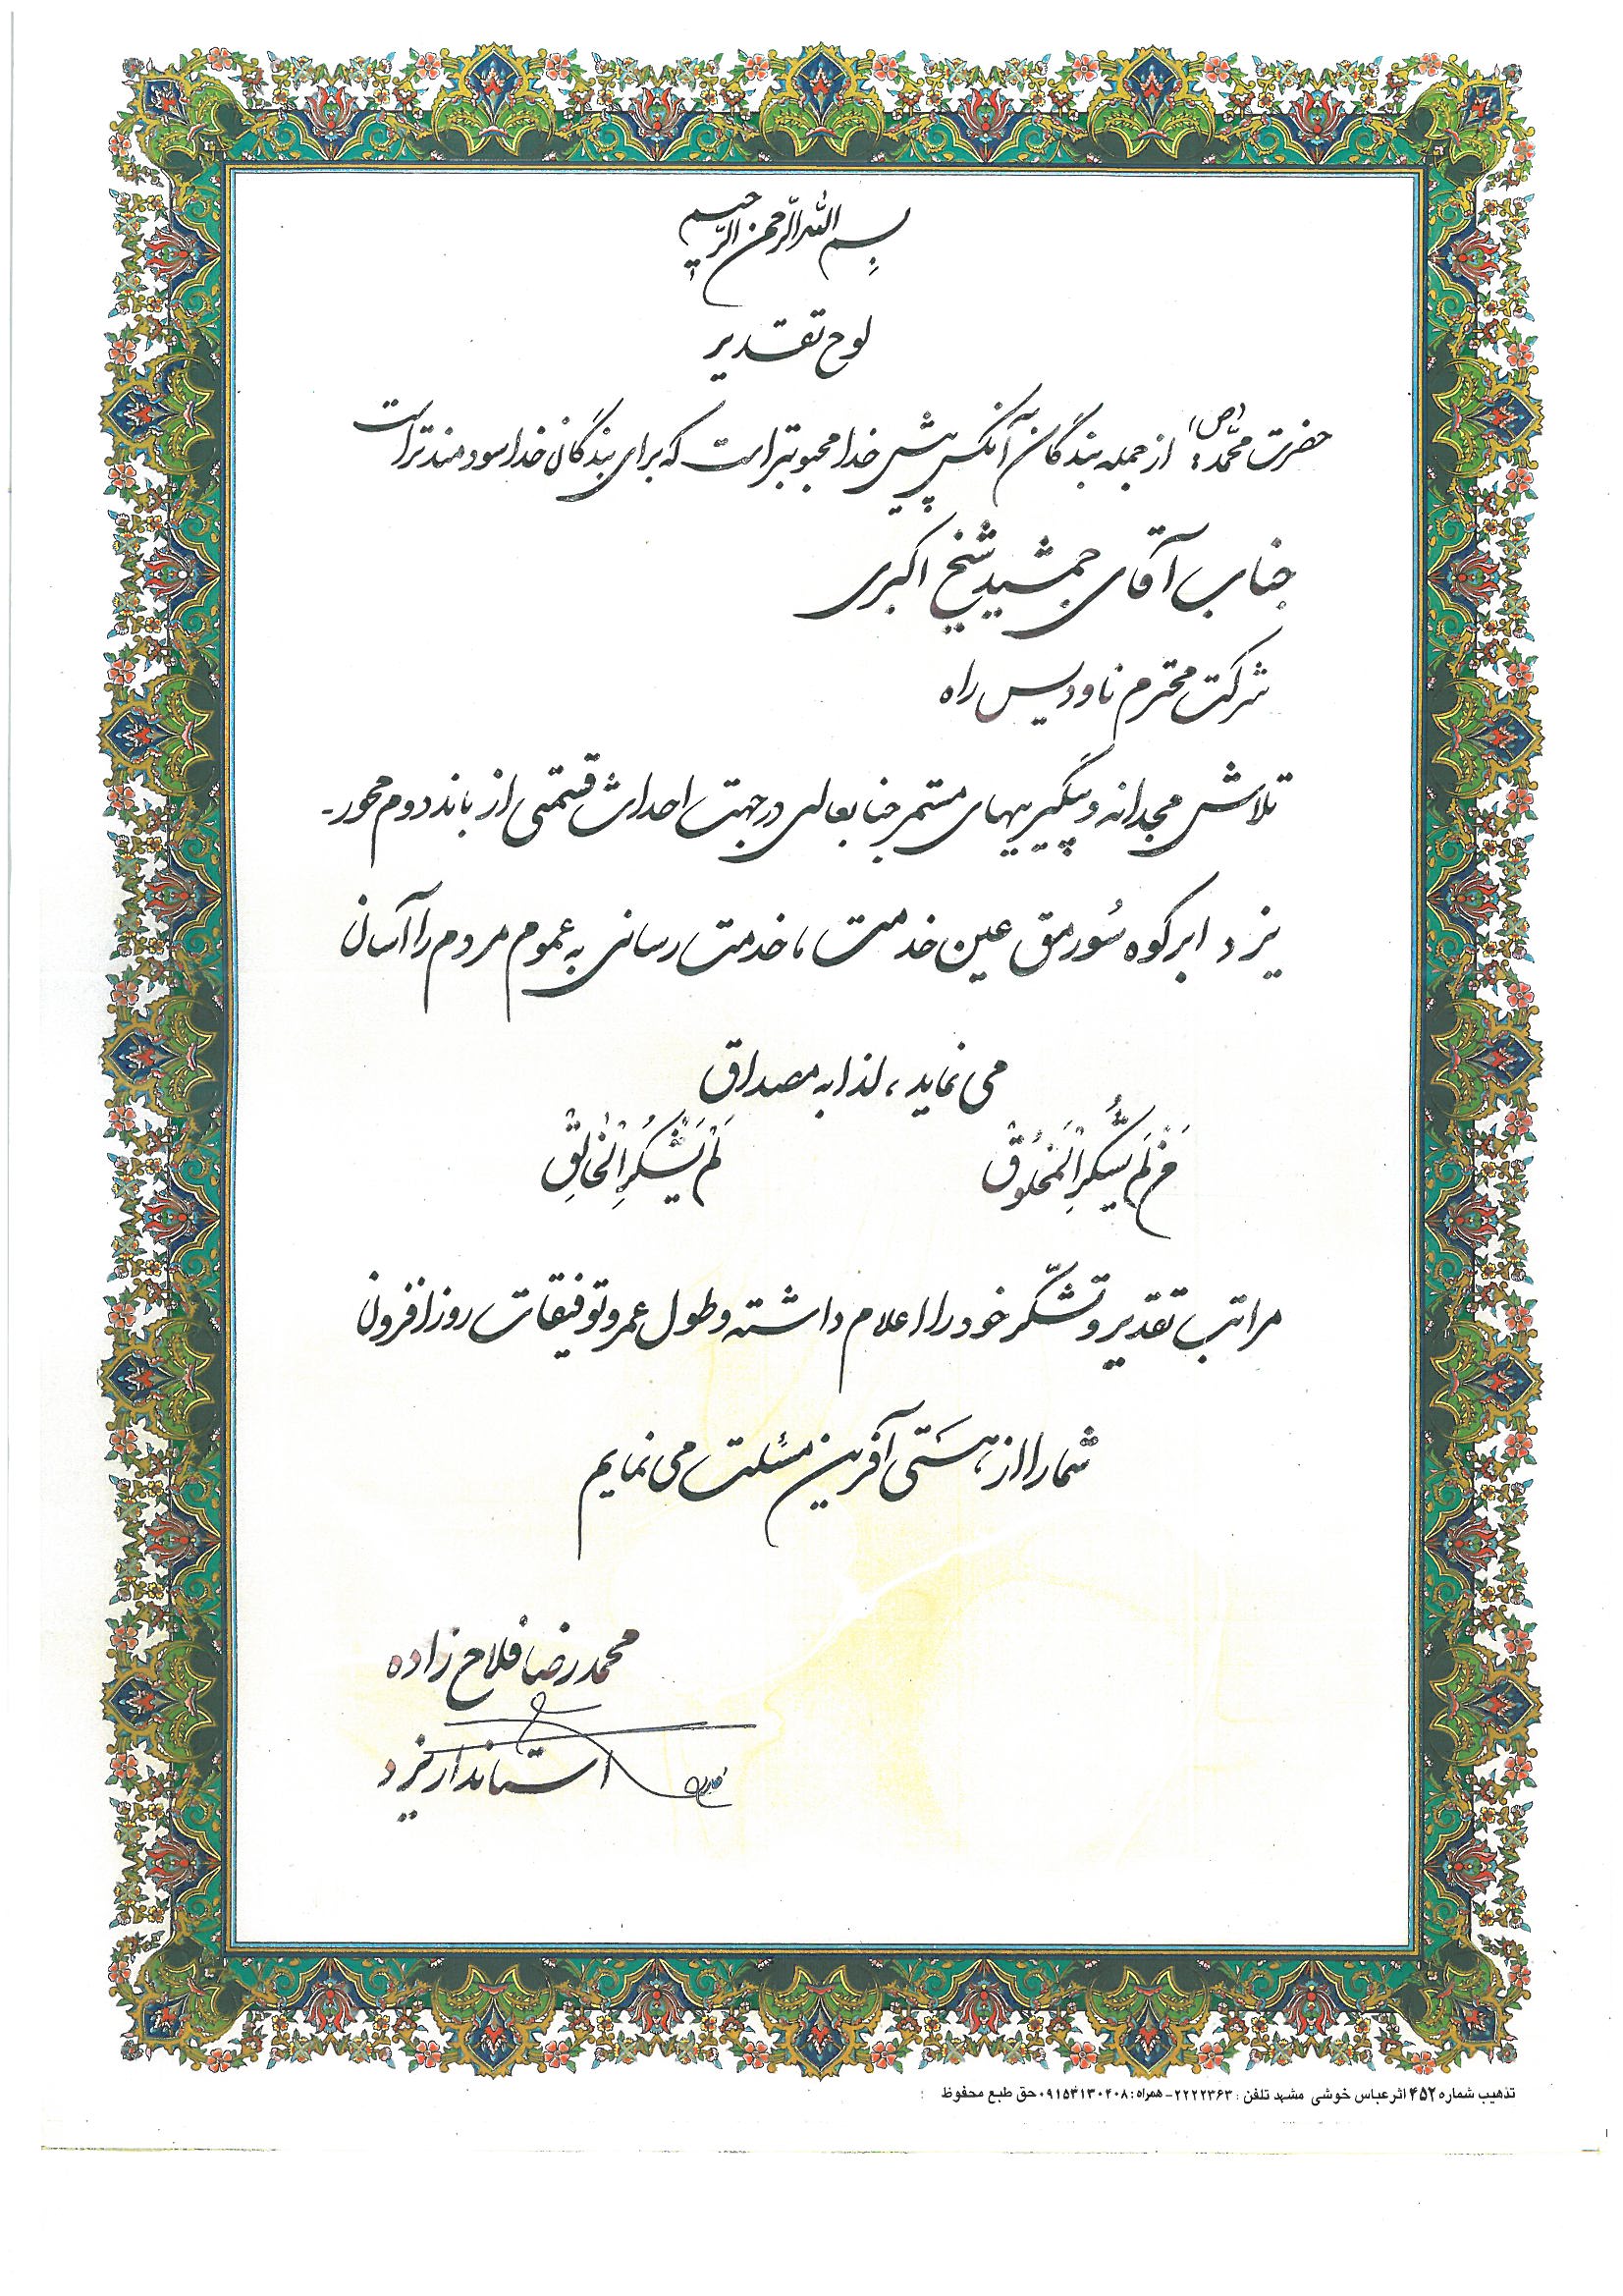 بسم الله الرّحمن الرّحیم
لوح تقدیر
حضرت محمّد (ص): از جمله بندگان آنکس پیش خدا محبوبتر است که برای بندگان خدا سودمندتر است
جناب آقای جمشید شیخ اکبری
شرکت محترم ناودیس راه
تلاش مجدانه و پیگیریهای مستمر جنابعالی در جهت احداث قسمتی از باند دوم محور-
یزد ابرکوه سُورمق عین خدمت، خدمت رسانی به عموم مردم را آسان
می نماید، لذا به مصداق
مَن لَم یَشکُرِ الْمَخلُوقْ لَمْ یَشْکُرِ الْخٰالِقْ
مراتب تقدیر و تشکّر خود را اعلام داشته و طول عمر و توفیقات روز افزون
شما را از هستی آفرین مسئلت می نمایم
محمدرضا فلاح زاده
استاندار یزد
تذهیب شماره ۴۵۲ اثر عباس خوشی مشهد تلفن : ۲۲۲۲۳۶۳- همراه : ۰۹۱۵۳۱۳۰۴۰۸ حق طبع محفوظ